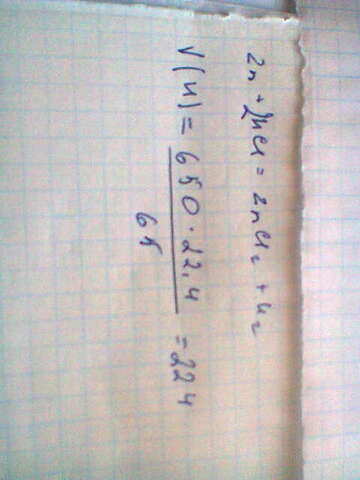 Zn + 2HCl = ZnCl₂ + H₂
V(H) = 650 · 22.4 = 224
65